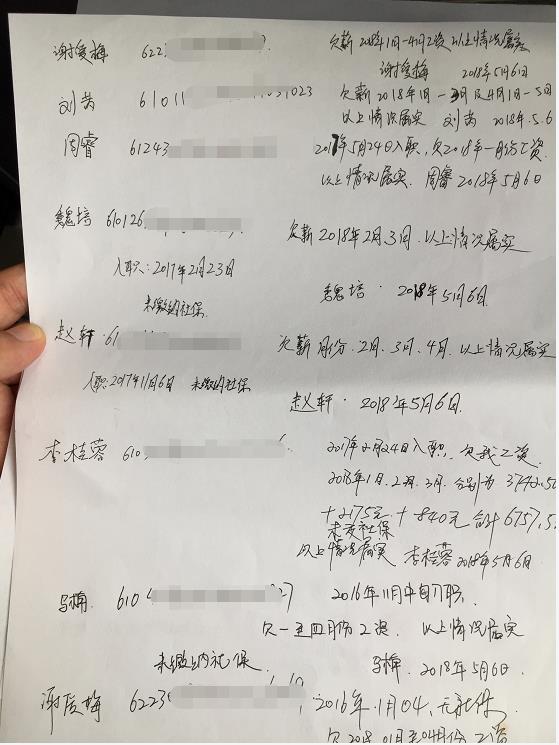 谢俊梅 622 欠薪2018年1月-4月工资 以上情况属实
谢俊梅 2018年5月6日
刘茜 61011 031023 欠薪2018年1月-3月及4月1日-5日
以上情况属实 刘茜 2018年.5.6
周睿 61243 2017年5月24日入职,欠2018年一月份工资.
以上情况属实. 周睿 2018年5月6日
魏培 610126 欠薪2018年2月.3月.以上情况属实
入职:2017年2月23日
魏培. 2018年5月6日.
未缴纳社保.
赵轩.61 欠薪 月份.2月.3月.4月.以上情况属实
入职:2017年11月6日 未缴纳社保
赵轩.2018年5月6日.
李桂蓉 610 2017年2月24日入职,欠我工资.
2018年1月.2月.3月.分别为3742.50
+2175元 + 840元 合计6757.5
未交社保
以上情况属实 李桂蓉 2018年5月6日
马梅 6104 27 2016年11月中旬入职.
欠一至四月份工资. 以上情况属实
未缴纳社保. 马梅.2018年5月6日.
谢俊梅 6223 2016年.1月04.无社保.
欠2018.01月至04月份工资